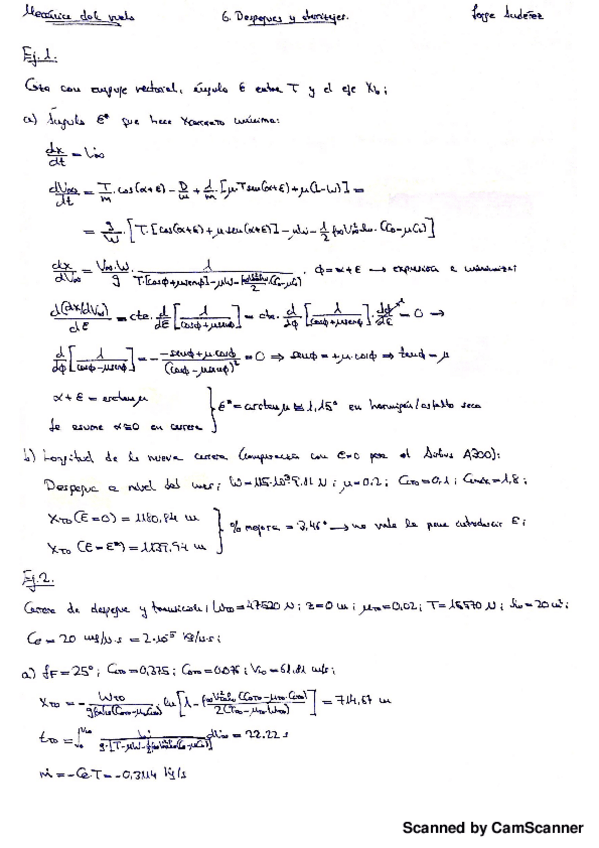 Mecánica del vuelo 6. Despegues y aterrizajes. Jorge
Ej. 1.
con empuje vectorial, ángulo ε entre T y el eje Xb;
a) Ángulo ε* que hace mínima:
dx/dt = V∞
dV∞/dt = T/m · cos(α+ε) − D/m + 1/m · [μ T sen(α+ε) + μ(L−W)] =
= g/W · [T·[cos(α+ε) + μ sen(α+ε)] − μW − 1/2 ρ∞V∞²S∞ · (CD − μCL)]
dx/dV∞ = V∞·W/g · 1/(T·[cosφ + μ senφ] − μW − ρ∞V∞²S∞/2 · (CD − μCL)) · φ = α+ε → expresión a minimizar
d(dx/dV∞)/dε = cte · d/dε [1/(cosφ + μ senφ)] = cte · d/dφ [1/(cosφ + μ senφ)] · dφ/dε = 0 →
d/dφ [1/(cosφ − μ senφ)] = − (−senφ + μ cosφ)/(cosφ − μ senφ)² = 0 ⇒ senφ = +μ cosφ ⇒ tanφ = μ
α + ε = arctan μ
Se asume α ≅ 0 en carrera } ε* = arctan μ ≅ 1,15° en hormigón/asfalto seco
b) Longitud de la nueva carrera (comparación con ε=0 para el Airbus A300):
Despegue a nivel del mar; W = 115·10³·9.81 N; μ = 0.2; = 0,1; = 1,8;
XTO (ε=0) = 1180,84 m
XTO (ε=ε*) = m } % mejora = 3,46% → no vale la pena introducir ε;
Ej. 2.
Carrera de despegue y transición; WTO = 47520 N; z = 0 m; μTO = 0,02; T = 15570 N; S∞ = 20 m²;
CE = 20 mg/N·s = 2·10⁻⁵ kg/N·s;
a) δF = 25°; = 0,375; = 0,076; VLO = 61,81 m/s;
XTO = − WTO/ ln [1 − ] = 714,67 m
tTO = ∫ dV∞ = 22,22 s
ṁ = −CE·T = −0,3114 kg/s
Scanned by CamScanner